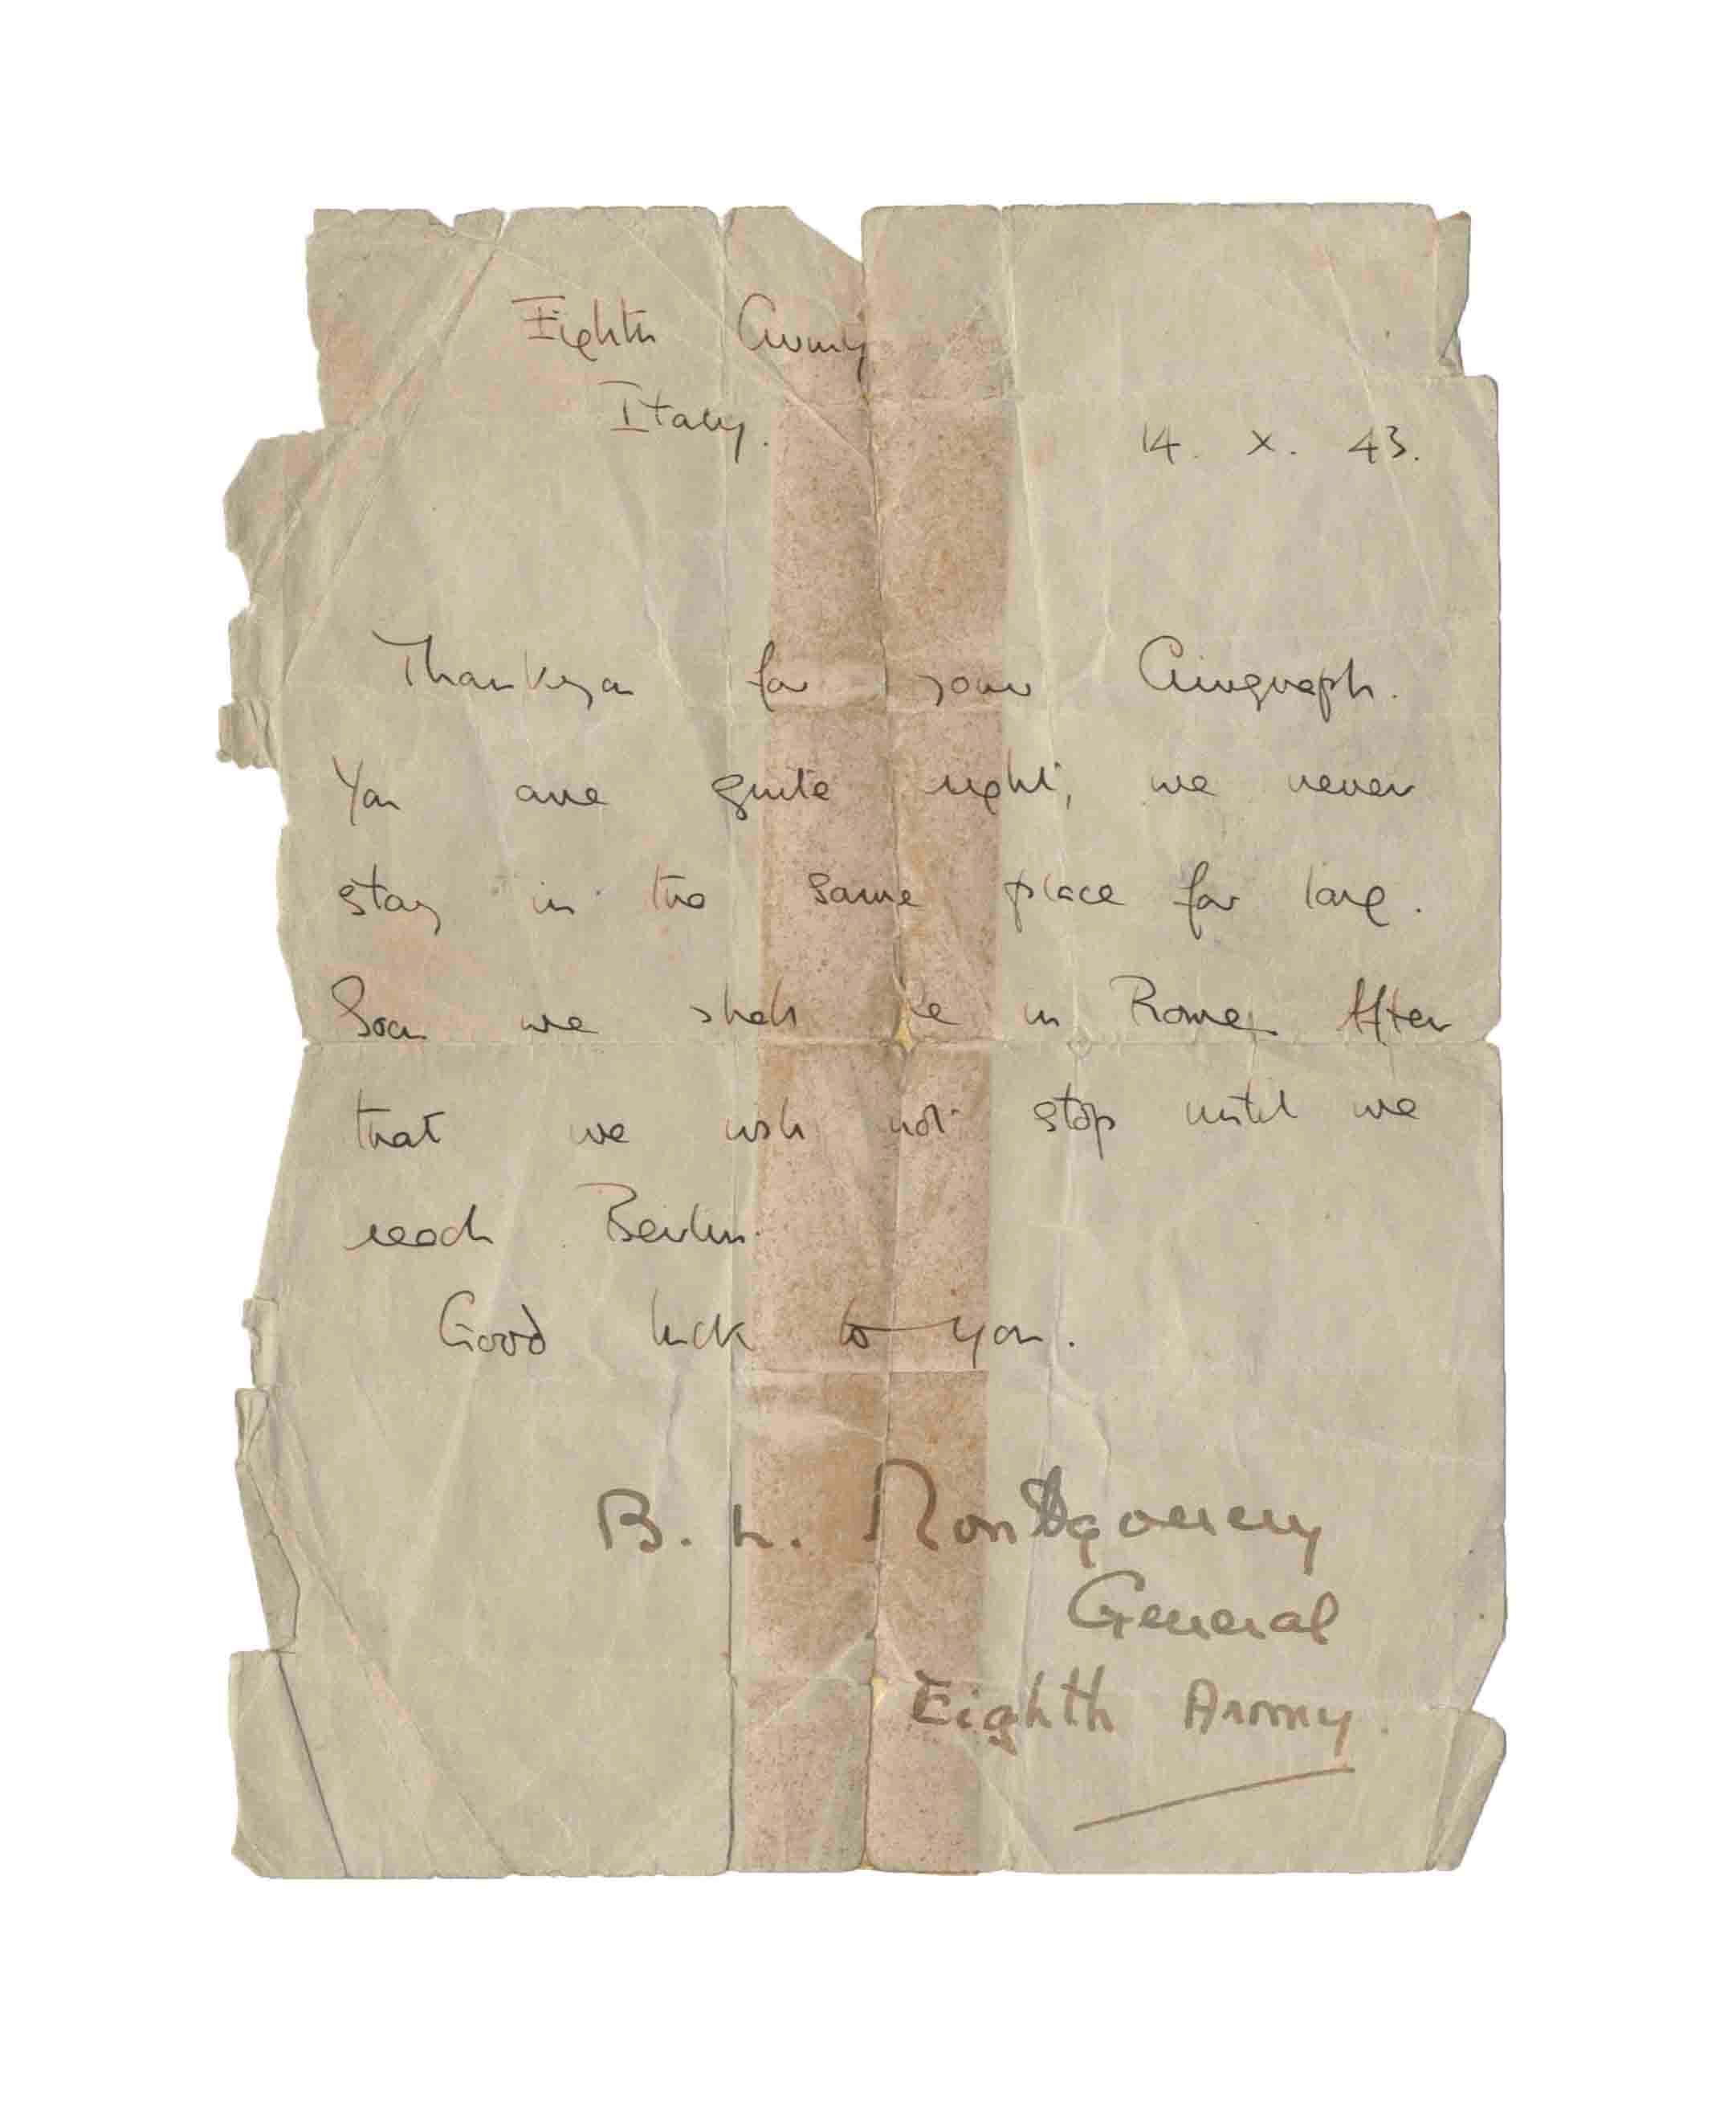 Eighth Army
Italy.
14. X. 43.
Thankyou for your Airgraph.
You are quite right; we never
stay in the same place for long.
Soon we shall be in Rome. After
that we wish not stop until we
reach Berlin.
Good luck to you.
B. L. Montgomery
General
Eighth Army.